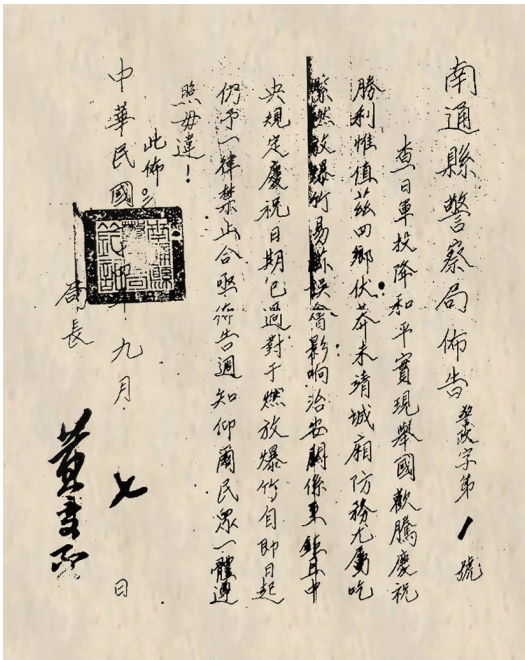 南通縣警察局佈告 政字第1號
查日軍投降和平實現舉國歡騰慶祝
勝利惟值茲四鄉伏莽未靖城廂防務尤屬吃
緊燃放爆竹易滋誤會影响治安關係重鉅且中
央規定慶祝日期已過對于燃放爆竹自即日起
仍予一律禁止合亟佈告週知仰爾民眾一體遵
照毋違!
此佈。
中華民國年九月七日
局長 黃